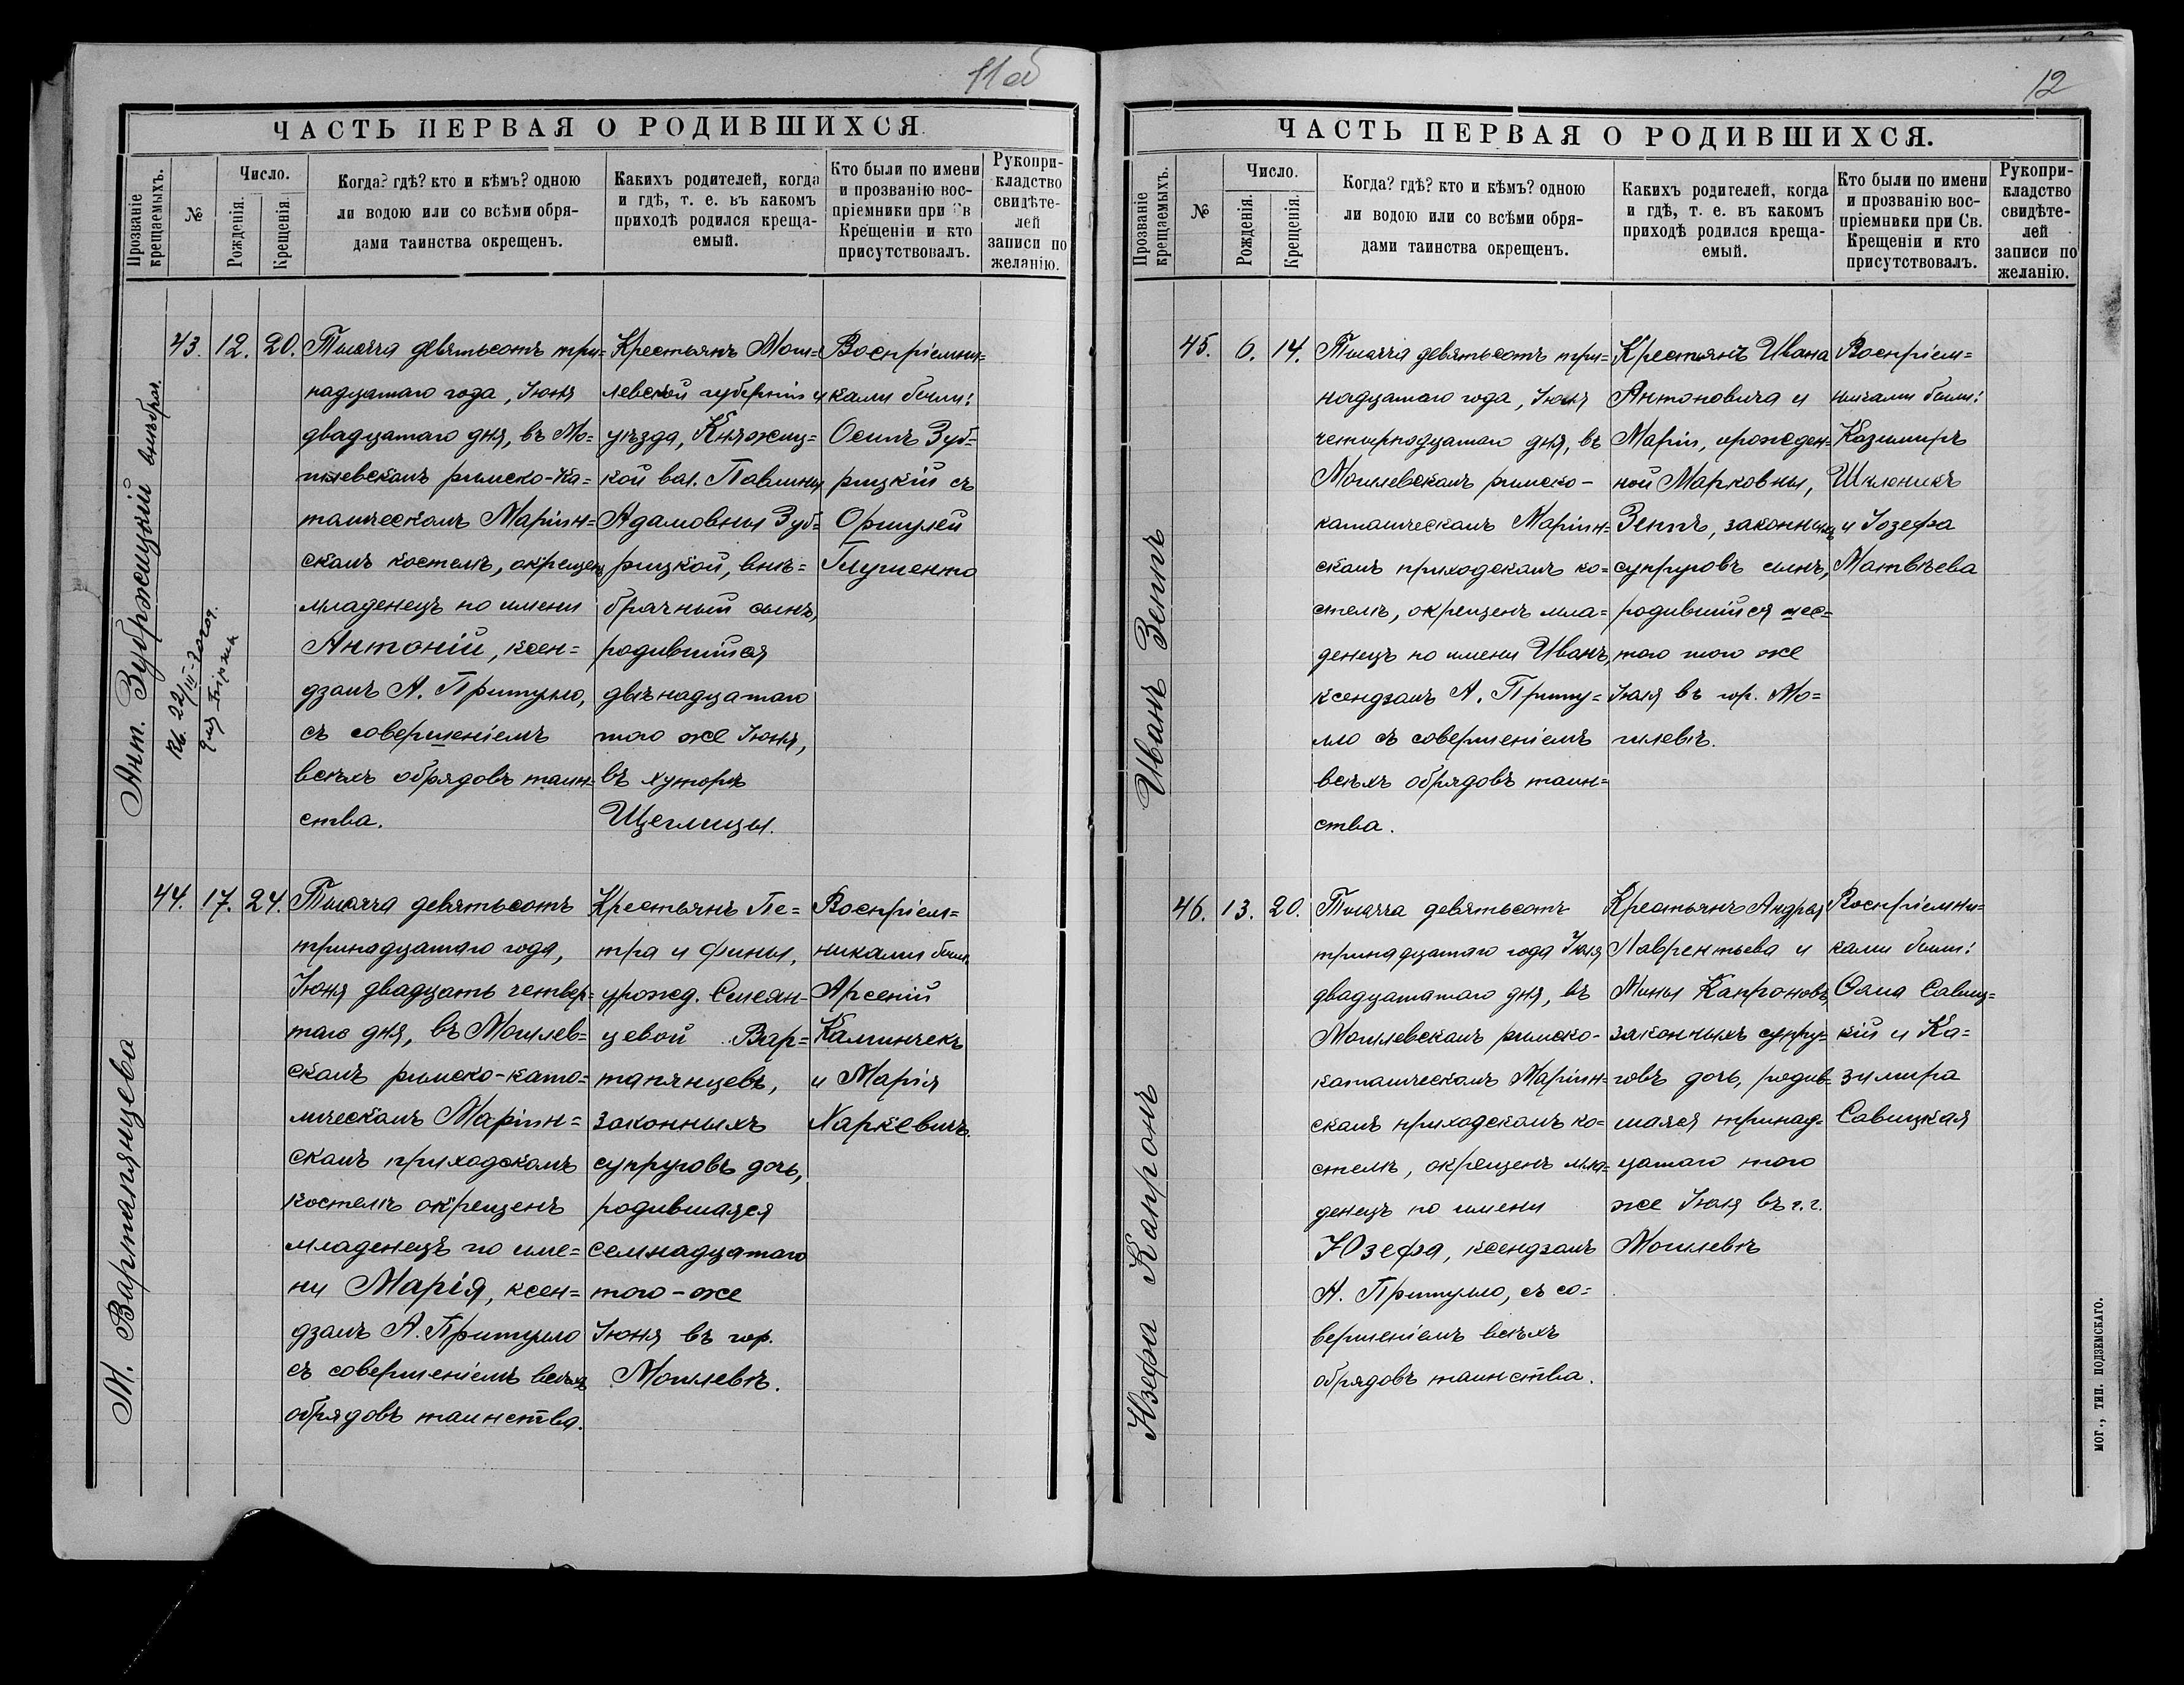 11об
ЧАСТЬ ПЕРВАЯ О РОДИВШИХСЯ.
Прозваніе крещаемыхъ.
№
Число.
Рожденія.
Крещенія.
Когда? гдѣ? кто и кѣмъ? одною
ли водою или со всѣми обря-
дами таинства окрещенъ.
Какихъ родителей, когда
и гдѣ, т. е. въ какомъ
приходѣ родился креща-
емый.
Кто были по имени
и прозванію вос-
пріемники при Св
Крещеніи и кто
присутствовалъ.
Рукопри-
кладство
свидѣте-
лей
записи по
желанію.
Ант. Зубржицкій внѣбрач.
43. 12. 20.
Тысяча девятьсотъ три=
надцатаго года, Іюня
двадцатаго дня, въ Мо=
гилевскомъ римско-ка=
толическомъ Маріин=
скомъ костелѣ, окрещенъ
младенецъ по имени
Антоній, ксен=
дзомъ А. Притулло,
съ совершеніемъ
всѣхъ обрядовъ таин=
ства.
Крестьянъ Моги=
левской губерніи и
уѣзда, Княжиц=
кой вол. Павлины
Адамовны Зуб=
рицкой, внѣ=
брачный сынъ,
родившійся
двѣнадцатаго
того же Іюня,
въ хуторѣ
Щеглицы.
Воспріемни=
ками были:
Осипъ Зуб=
рицкій съ
Оршулей
М. Вартапянцева
44. 17. 24.
Тысяча девятьсотъ
тринадцатаго года,
Іюня двадцать четвер=
таго дня, въ Могилев=
скомъ римско-като=
лическомъ Маріин=
скомъ приходскомъ
костелѣ окрещенъ
младенецъ по име=
ни Марія, ксен=
дзомъ А. Притулло
съ совершеніемъ всѣхъ
обрядовъ таинства.
Крестьянъ Пе=
тра и Фины,
урожд. Смеян=
цевой Вар=
тапянцевъ,
законныхъ
супруговъ дочь,
родившаяся
семнадцатаго
того-же
Іюня въ гор.
Могилевѣ.
Воспріем=
никами были:
Арсеній
Каминчекъ
и Марія
Харкевичъ.
12
ЧАСТЬ ПЕРВАЯ О РОДИВШИХСЯ.
Прозваніе крещаемыхъ.
№
Число.
Рожденія.
Крещенія.
Когда? гдѣ? кто и кѣмъ? одною
ли водою или со всѣми обря-
дами таинства окрещенъ.
Какихъ родителей, когда
и гдѣ, т. е. въ какомъ
приходѣ родился креща-
емый.
Кто были по имени
и прозванію вос-
пріемники при Св.
Крещеніи и кто
присутствовалъ.
Рукопри-
кладство
свидѣте-
лей
записи по
желанію.
Иванъ Зеппъ
45. 6. 14.
Тысяча девятьсотъ три=
надцатаго года, Іюля
четырнадцатаго дня, въ
Могилевскомъ римско-
католическомъ Маріин=
скомъ приходскомъ ко=
стелѣ, окрещенъ мла=
денецъ по имени Иванъ,
ксендзомъ А. Приту=
лло съ совершеніемъ
всѣхъ обрядовъ таин=
ства.
Крестьянъ Ивана
Антоновича и
Маріи, урожден=
ной Марковны,
Зеппъ, законныхъ
супруговъ сынъ,
родившійся шес=
того того же
Іюля въ гор. Мо=
гилевѣ.
Воспріем=
никами были:
Казимиръ
Шклоникъ
и Іозефа
Матвѣева
Юзефа Капронъ
46. 13. 20.
Тысяча девятьсотъ
тринадцатаго года Іюля
двадцататаго дня, въ
Могилевскомъ римско-
католическомъ Маріин=
скомъ приходскомъ ко=
стелѣ, окрещенъ мла=
денецъ по имени
Юзефа, ксендзомъ
А. Притулло, съ со=
вершеніемъ всѣхъ
обрядовъ таинства.
Крестьянъ Андрея
Лаврентьева и
Мины Капроновъ
законныхъ супру=
говъ дочь, родив=
шаяся тринад=
цатаго того
же Іюля въ г.г.
Могилевѣ
Воспріемни=
ками были:
Фома Савиц=
кій и Ка=
зимира
Савицкая
МОГ., ТИП. ПОДЗЕМСКАГО.